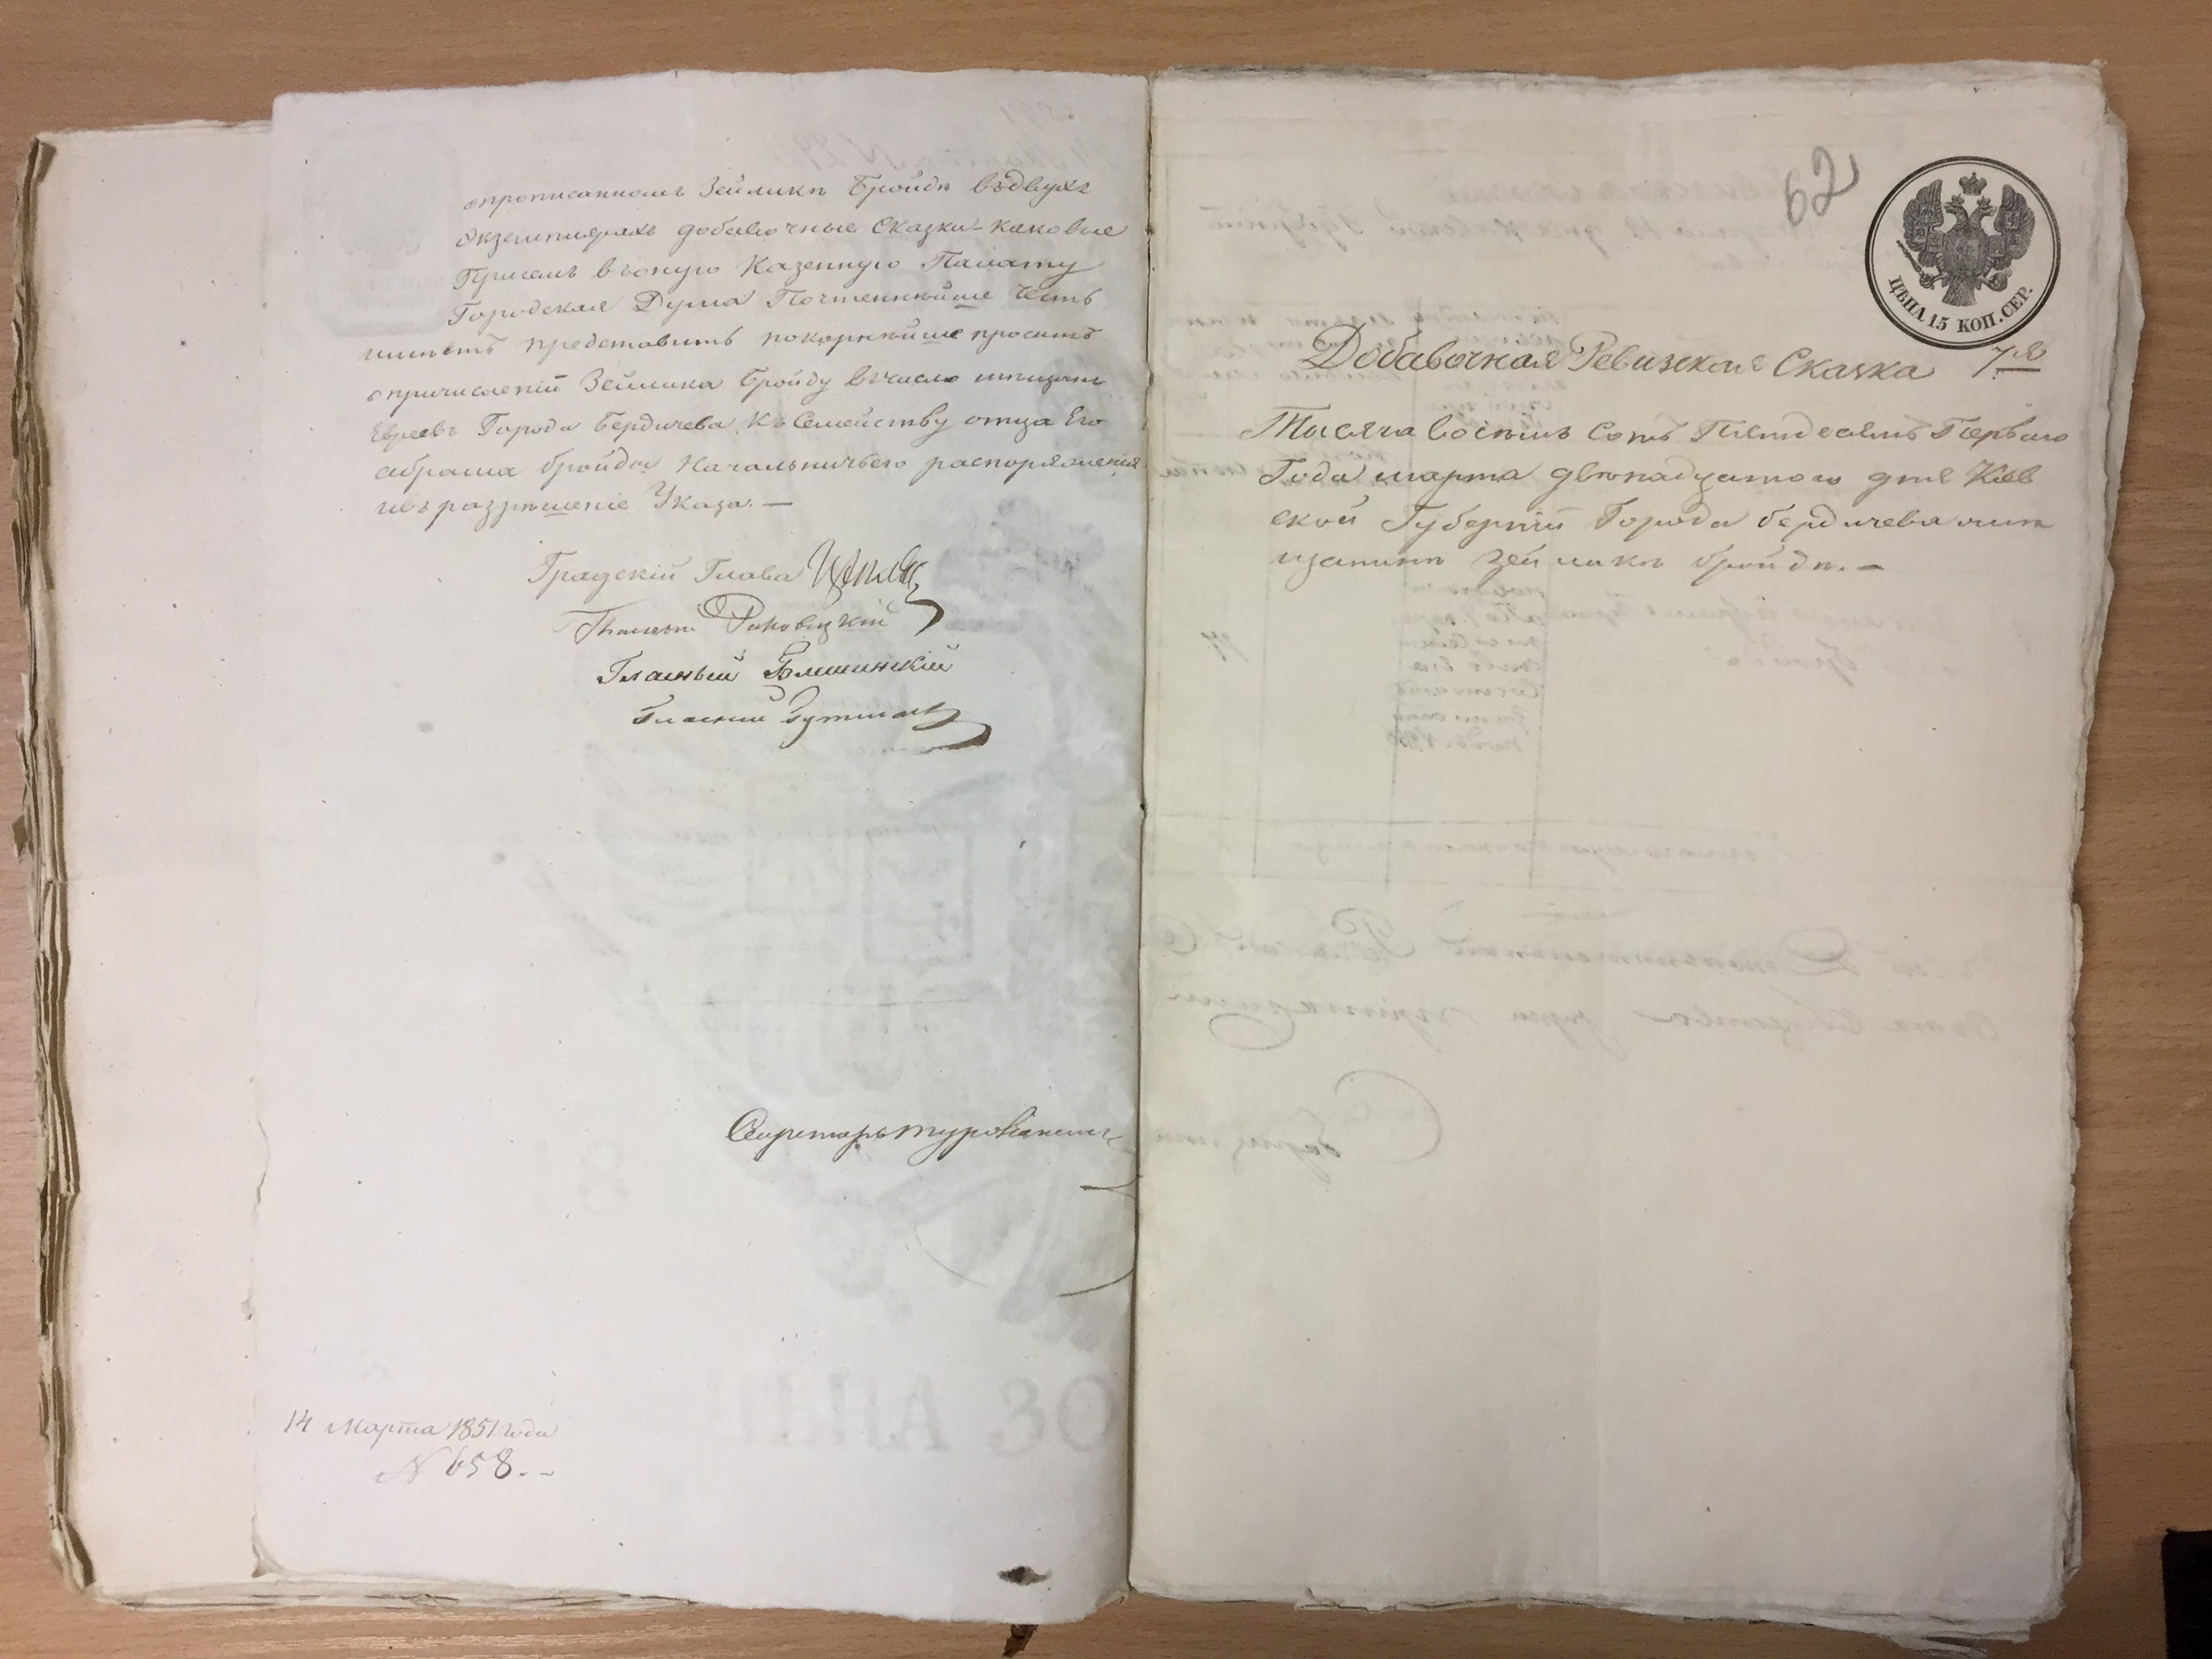 опрописанномъ Зейликѣ Бройдѣ въдвухъ
экземплярахъ добавочные Сказки каковые
Присемъ въоную Казенную Палату
Городская Дума Почтеннѣйше честь
имѣетъ представить покорнѣйше просить
опричисленіи Зейлика Бройду вчисло мѣщанъ
Евреевъ Города Бердичева Къ Семейству отца Его
абрама бройды Начальничьего распоряженія
ивъразрѣшеніе Указа. —
Градскій Глава
Гласный
Гласный
Секретарь
14 Марта 1851 года
N 658. -
62
ЦѢНА 15 КОП. СЕР.
Добавочная Ревизская Сказка 7я
Тысяча восемъ Сотъ Пятдесятъ Перваго
Года марта двѣнадцатого дня Кіев
ской Губерніи Города бердичева омѣ
щанинѣ Зейликѣ бройдѣ. —